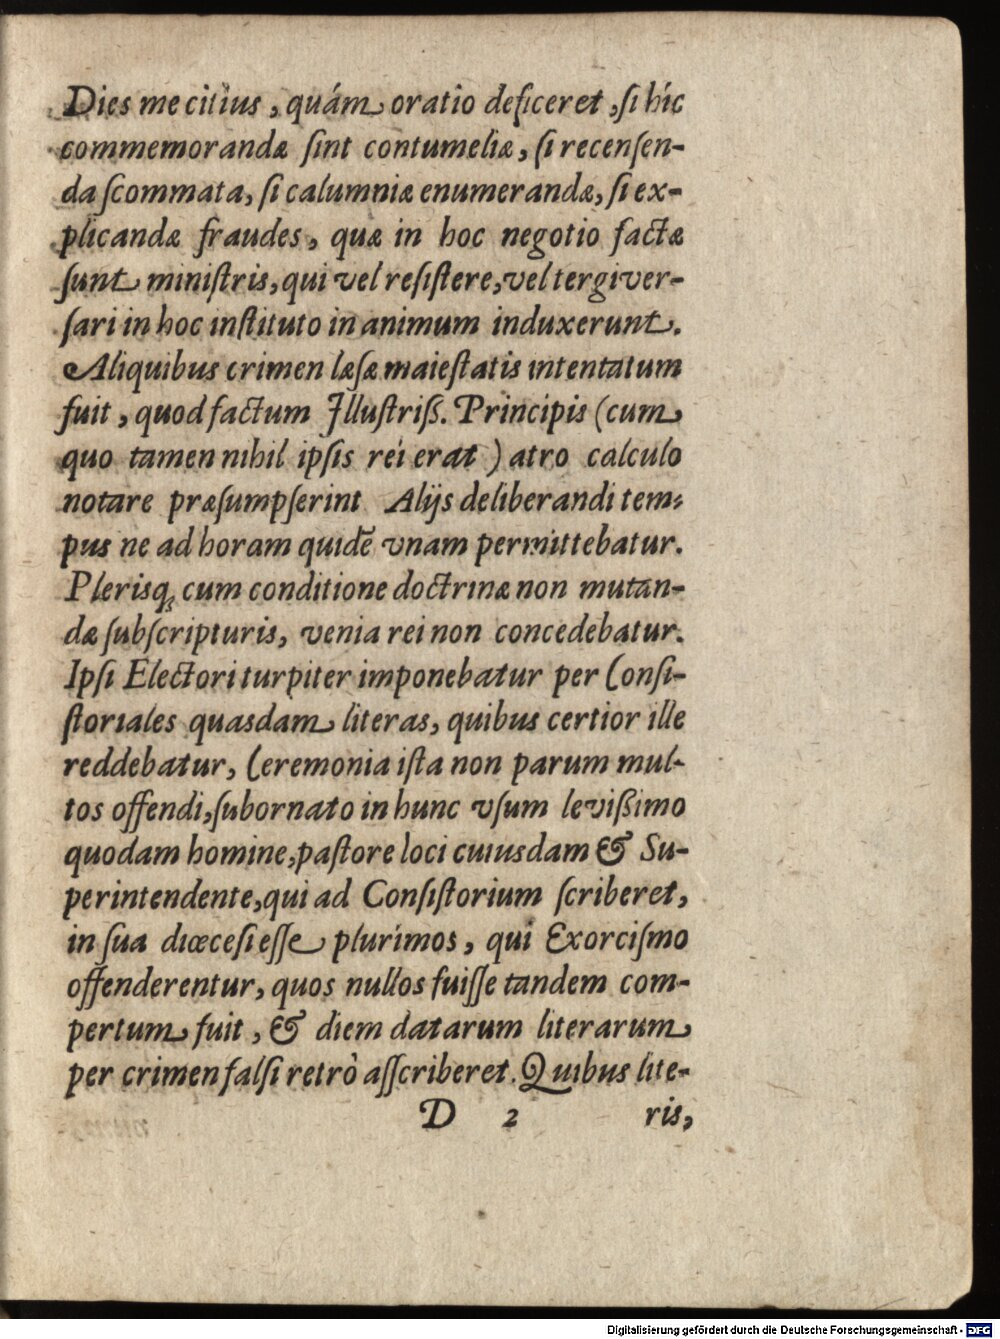 Dies me citius, quám oratio deficeret, ſi hîc
commemorandæ ſint contumeliæ, ſi recenſen-
da ſcommata, ſi calumniæ enumerandæ, ſi ex-
plicandæ fraudes, quæ in hoc negotio factæ
ſunt miniſtris, qui vel reſiſtere, vel tergiver-
ſari in hoc inſtituto in animum induxerunt.
Aliquibus crimen læſæ maieſtatis intentatum
fuit, quod factum Illuſtriß. Principis (cum
quo tamen nihil ipſis rei erat) atro calculo
notare præſumpſerint Alijs deliberandi tem-
pus ne ad horam quidē vnam permittebatur.
Plerisq; cum conditione doctrinæ non mutan-
dæ ſubſcripturis, venia rei non concedebatur.
Ipſi Electori turpiter imponebatur per Conſi-
ſtoriales quasdam literas, quibus certior ille
reddebatur, Ceremonia iſta non parum mul-
tos offendi, ſubornato in hunc vſum levißimo
quodam homine, paſtore loci cuiusdam & Su-
perintendente, qui ad Conſiſtorium ſcriberet,
in ſua diœceſi eſſe plurimos, qui Exorciſmo
offenderentur, quos nullos fuiſſe tandem com-
pertum fuit, & diem datarum literarum
per crimen falſi retrò aſſcriberet. Quibus lite-
D 2 ris,
Digitalisierung gefördert durch die Deutsche Forschungsgemeinschaft - DFG